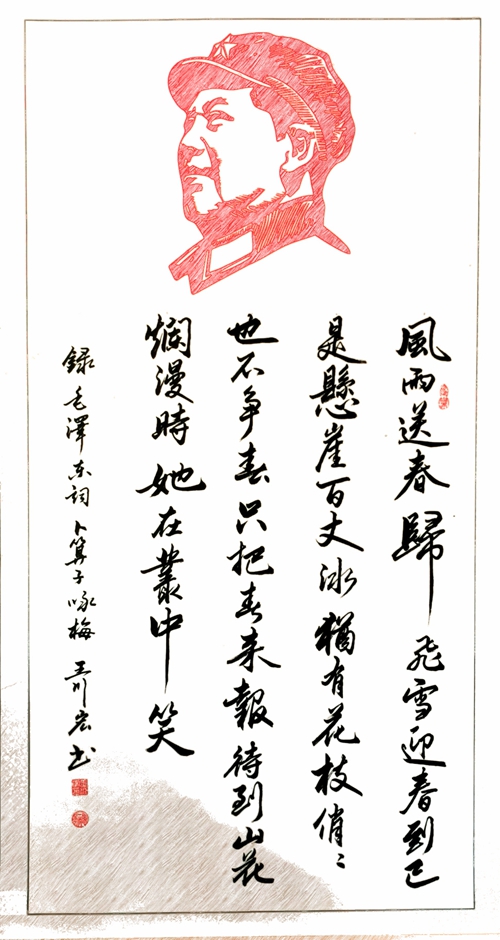 風雨送春歸飛雪迎春到已
是懸崖百丈冰猶有花枝俏〻
也不争春只把春来報待到山花
爛漫時她在叢中笑
録毛澤东詞卜算子咏梅 书